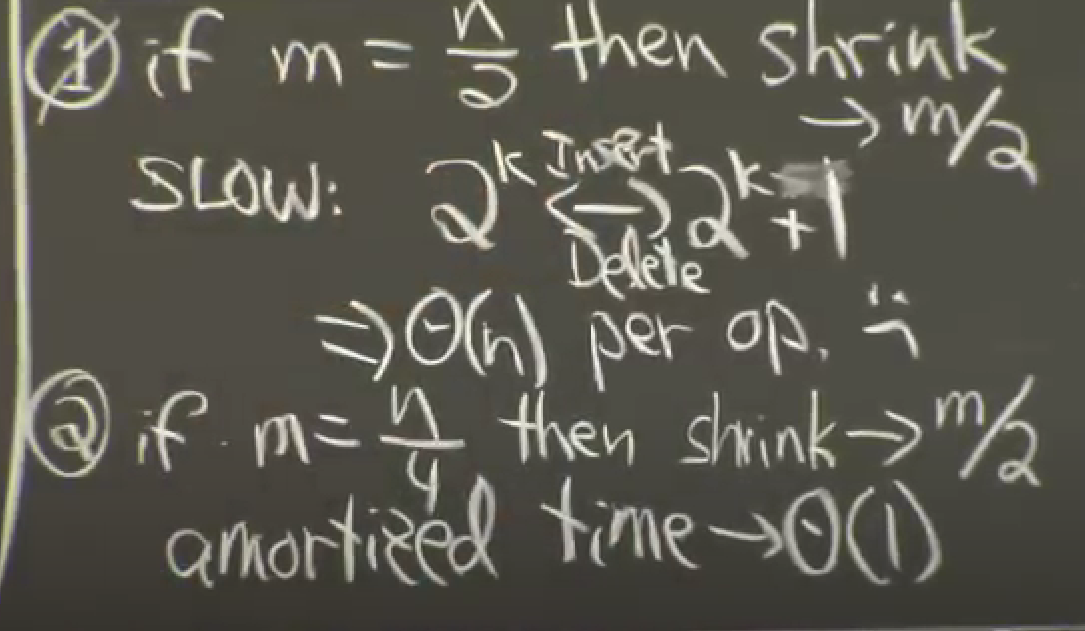 ① if m = n/2 then shrink
→ m/2
SLOW: 2^k Insert ⟷ Delete 2^k+1
⇒ Θ(n) per op. :(
② if m = n/4 then shrink → m/2
amortized time → Θ(1)